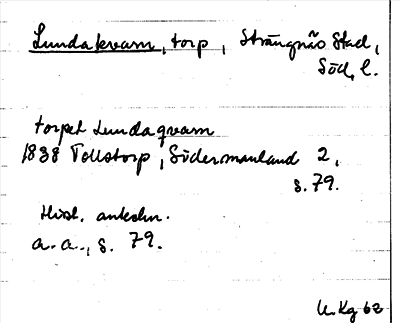 Lundakvarn, torp, Strängnäs Stad,
Söd. l.
torpet Lundaqvarn
1838 Tollstorp, Södermanland 2,
s. 79.
Hist. anteckn.
a. a., s. 79.
U. Kg 62